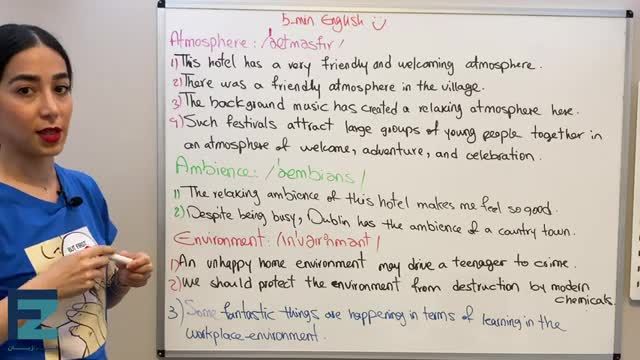 5-min English
Atmosphere: /ˈætmǝsfɪr/
1) This hotel has a very friendly and welcoming atmosphere.
2) There was a friendly atmosphere in the village.
3) The background music has created a relaxing atmosphere here.
4) Such festivals attract large groups of young people together in
an atmosphere of welcome, adventure, and celebration.
Ambience: /ˈæmbiəns/
1) The relaxing ambience of this hotel makes me feel so good.
2) Despite being busy, Dublin has the ambience of a country town.
Environment:
1) An unhappy home environment may drive a teenager to crime.
2) We should protect the environment from destruction by modern
chemicals.
3) Some fantastic things are happening in terms of learning in the
workplace environment.
BUT FIRST
EZ